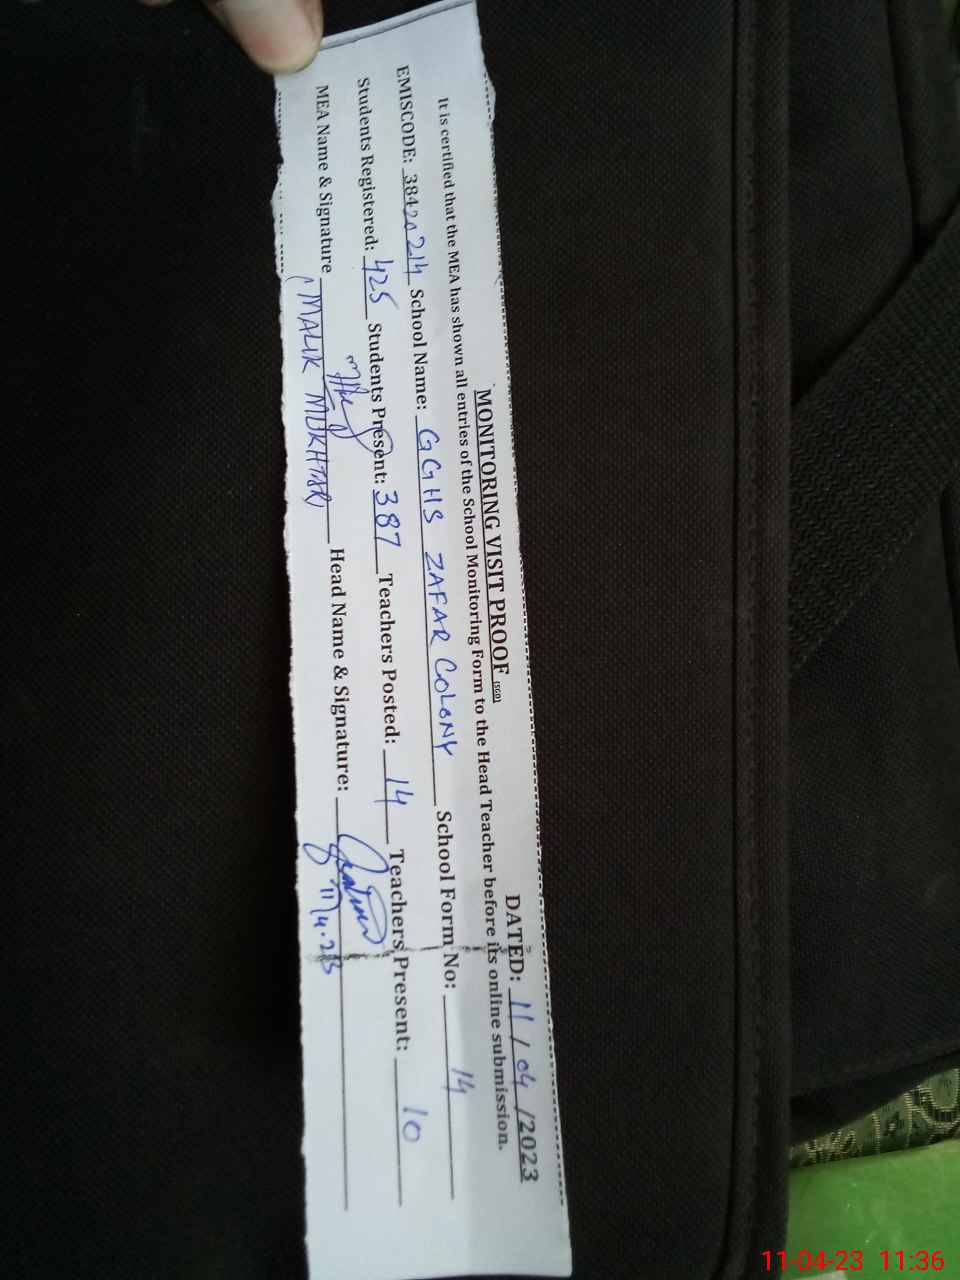 MONITORING VISIT PROOF (SGD) DATED: 11/04/2023
It is certified that the MEA has shown all entries of the School Monitoring Form to the Head Teacher before its online submission.
EMISCODE: 38420214 School Name: GGHS ZAFAR COLONY School Form No: 14
Students Registered: 425 Students Present: 387 Teachers Posted: 14 Teachers Present: 10
MEA Name & Signature Head Name & Signature:
(MALIK MUKHTAR) 11/4.23
11-04-23 11:36